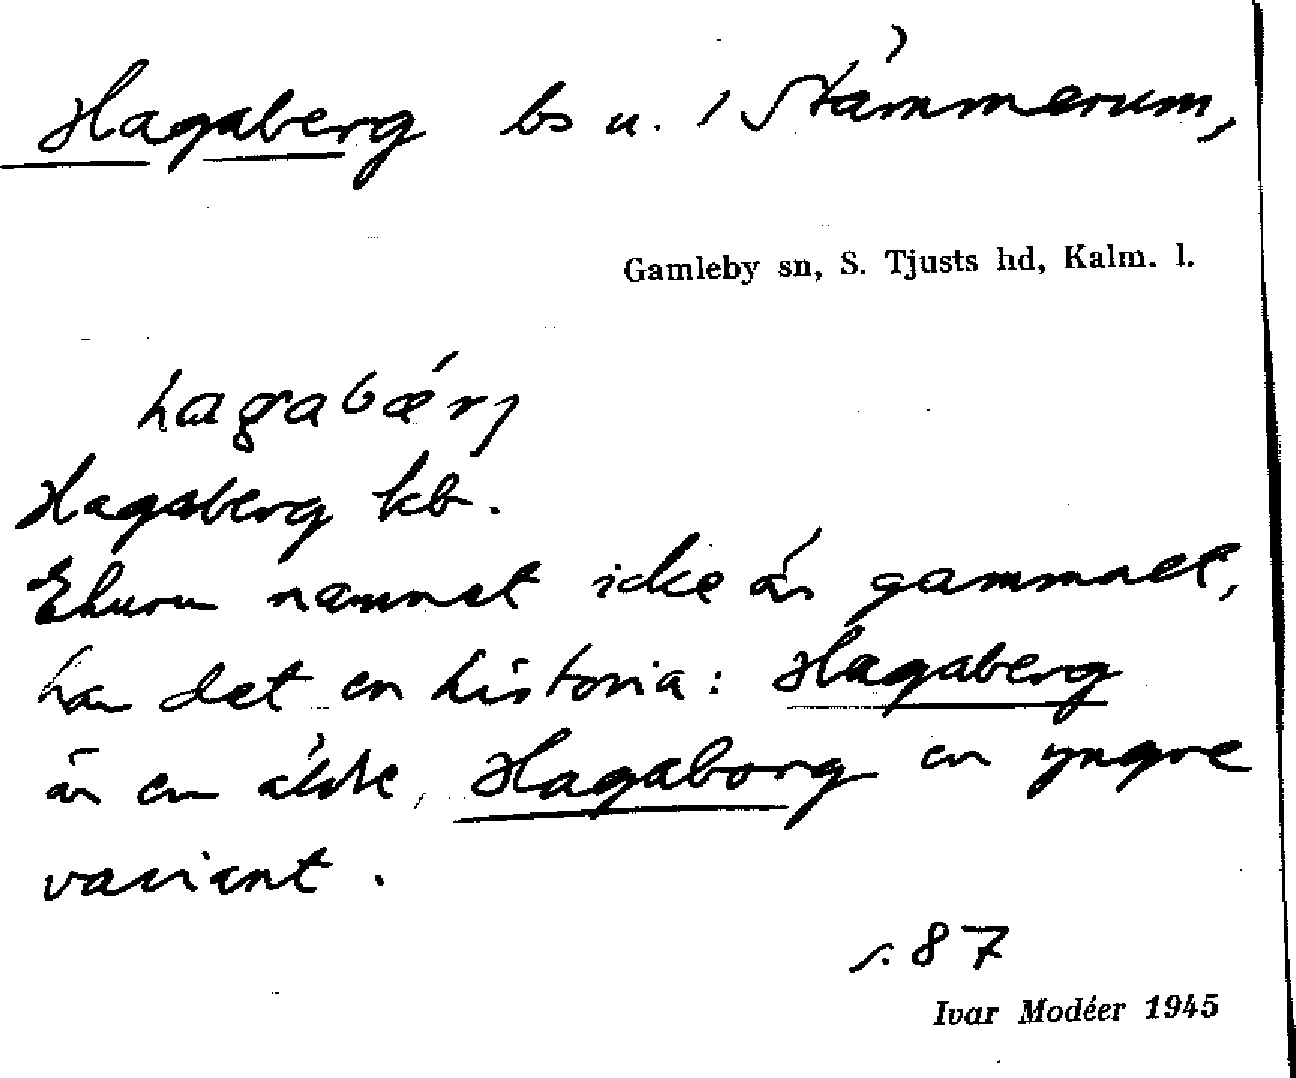 Hagaberg bs u. 1 Stämmerum,
Gamleby sn, S. Tjusts hd, Kalm. l.
hagabǽrj
Hagaberg kb.
Ehuru namnet icke är gammalt,
har det en historia: Hagaberg
är en äldre, Hagaborg en yngre
variant.
s. 87
Ivar Modéer 1945